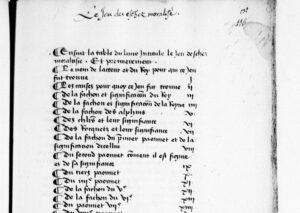 Le Jeu des eschez moralisé
¶ Ensuit la table du livre Intitule le Jeu des eschez
moralisie. Et premierement.
¶ Le nom de lacteur et du Roy pour qui ce Jeu
fut trouve I
¶ Les causes pour quoy ce Jeu fut trouve II
¶ De la fachon et signification du Roy III
¶ De la fachon et signification de la Royne
¶ De la fachon des alphins V
¶ Des chlrs et leur signifiance VI
¶ Des Rocquets et leur signifiance VII
¶ De la fachon du premier paonnet et de la
signification dicelluy VIII
¶ Du second paonnet coment il est figure
et de sa signifiance IX
¶ Du tiers paonnet X
¶ Du IIIIe paonnet XI
¶ De la fachon du Ve XII
¶ De la fachon du VIe paonnet